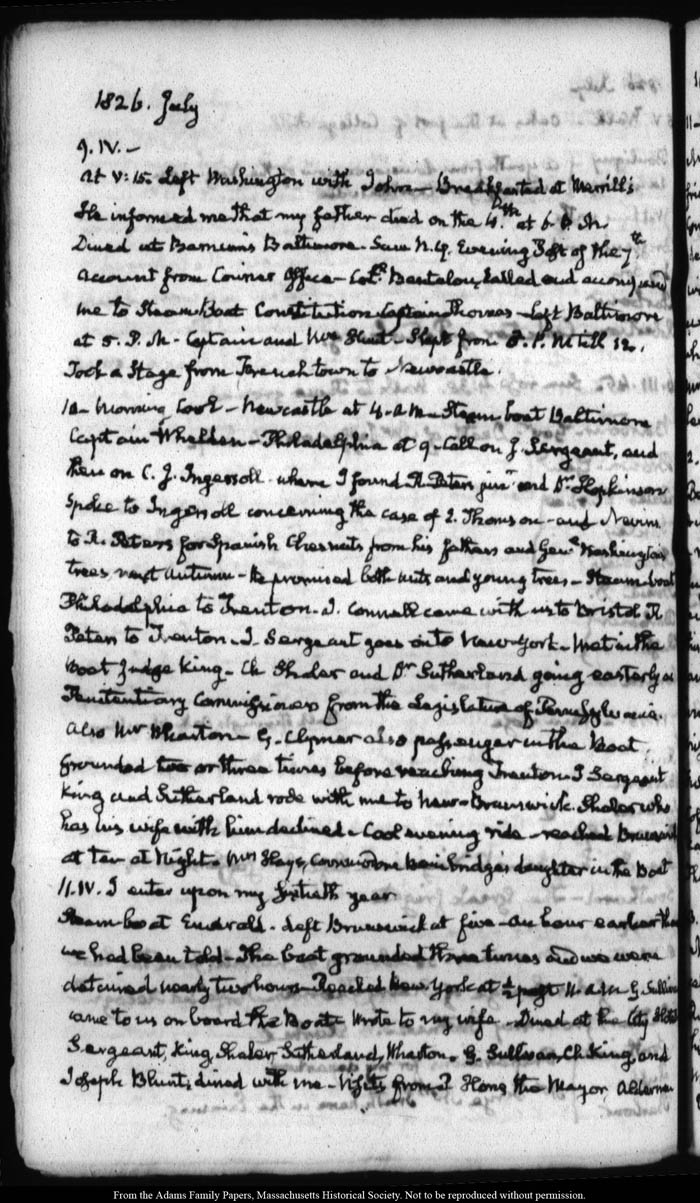 1826. July
9. IV.—
At V: 15. Left Washington with John — Breakfasted at Merrill's
He informed me that my father died on the 4th. at 6. P.M.
Dined at Barnum's Baltimore. Saw N.Y. Evening Post of the 7th
Account from Courier Office — Bentalou, called and accompanied
me to Steam Boat Constitution Captain Thomas — Left Baltimore
at 5. P.M — Captain and Mrs Hunt — Slept from 8. P.M till 12.
Took a Stage from Frenchtown to Newcastle.
10 — Morning Cool — Newcastle at 4. A.M — Steam boat Baltimore
Captain Whelden — Philadelphia at 9. Call on J. Sergeant, and
then on C. J. Ingersoll. where I found R. Peters junr and Hopkinson
Spoke to Ingersoll concerning the case of Thomson — and Nevins
to R. Peters for Spanish Chesnuts from his fathers and Genl Washington's
trees next Autumn — He promised both nuts and young trees — Steam-boat
Philadelphia to Trenton. J. Connell came with us to Bristol R
Peters to Trenton. J Sergeant goes on to New-York — Met in the
Boat Judge King — Ch Shaler and Dr Sutherland going easterly as
Penitentiary Commissioners from the Legislature of Pennsylvania.
Also Mr Wharton — G. Clymer also passenger in the Boat
Grounded two or three times before reaching Trenton. J Sergeant
King and Sutherland rode with me to New-Brunswick. Shaler who
has his wife with him declined — Cool evening ride — reached Brunswick
at ten at Night. Mrs Hays, Commodore Bainbridge's daughter in the Boat
11. IV. I enter upon my sixtieth year
Steam-boat Emerald. Left Brunswick at five — an hour earlier than
we had been told — The boat grounded three times and we were
detained nearly two hours — Reached New York at ½ past 11. A.M G. Sullivan
came to us on board the Boat — Wrote to my wife — Dined at the City Hotel
Sergeant, King, Shaler, Sutherland, Wharton, G. Sullivan, Ch King, and
Joseph Blunt, dined with me — Visits from P Hone, the Mayor, Alderman
From the Adams Family Papers, Massachusetts Historical Society. Not to be reproduced without permission.